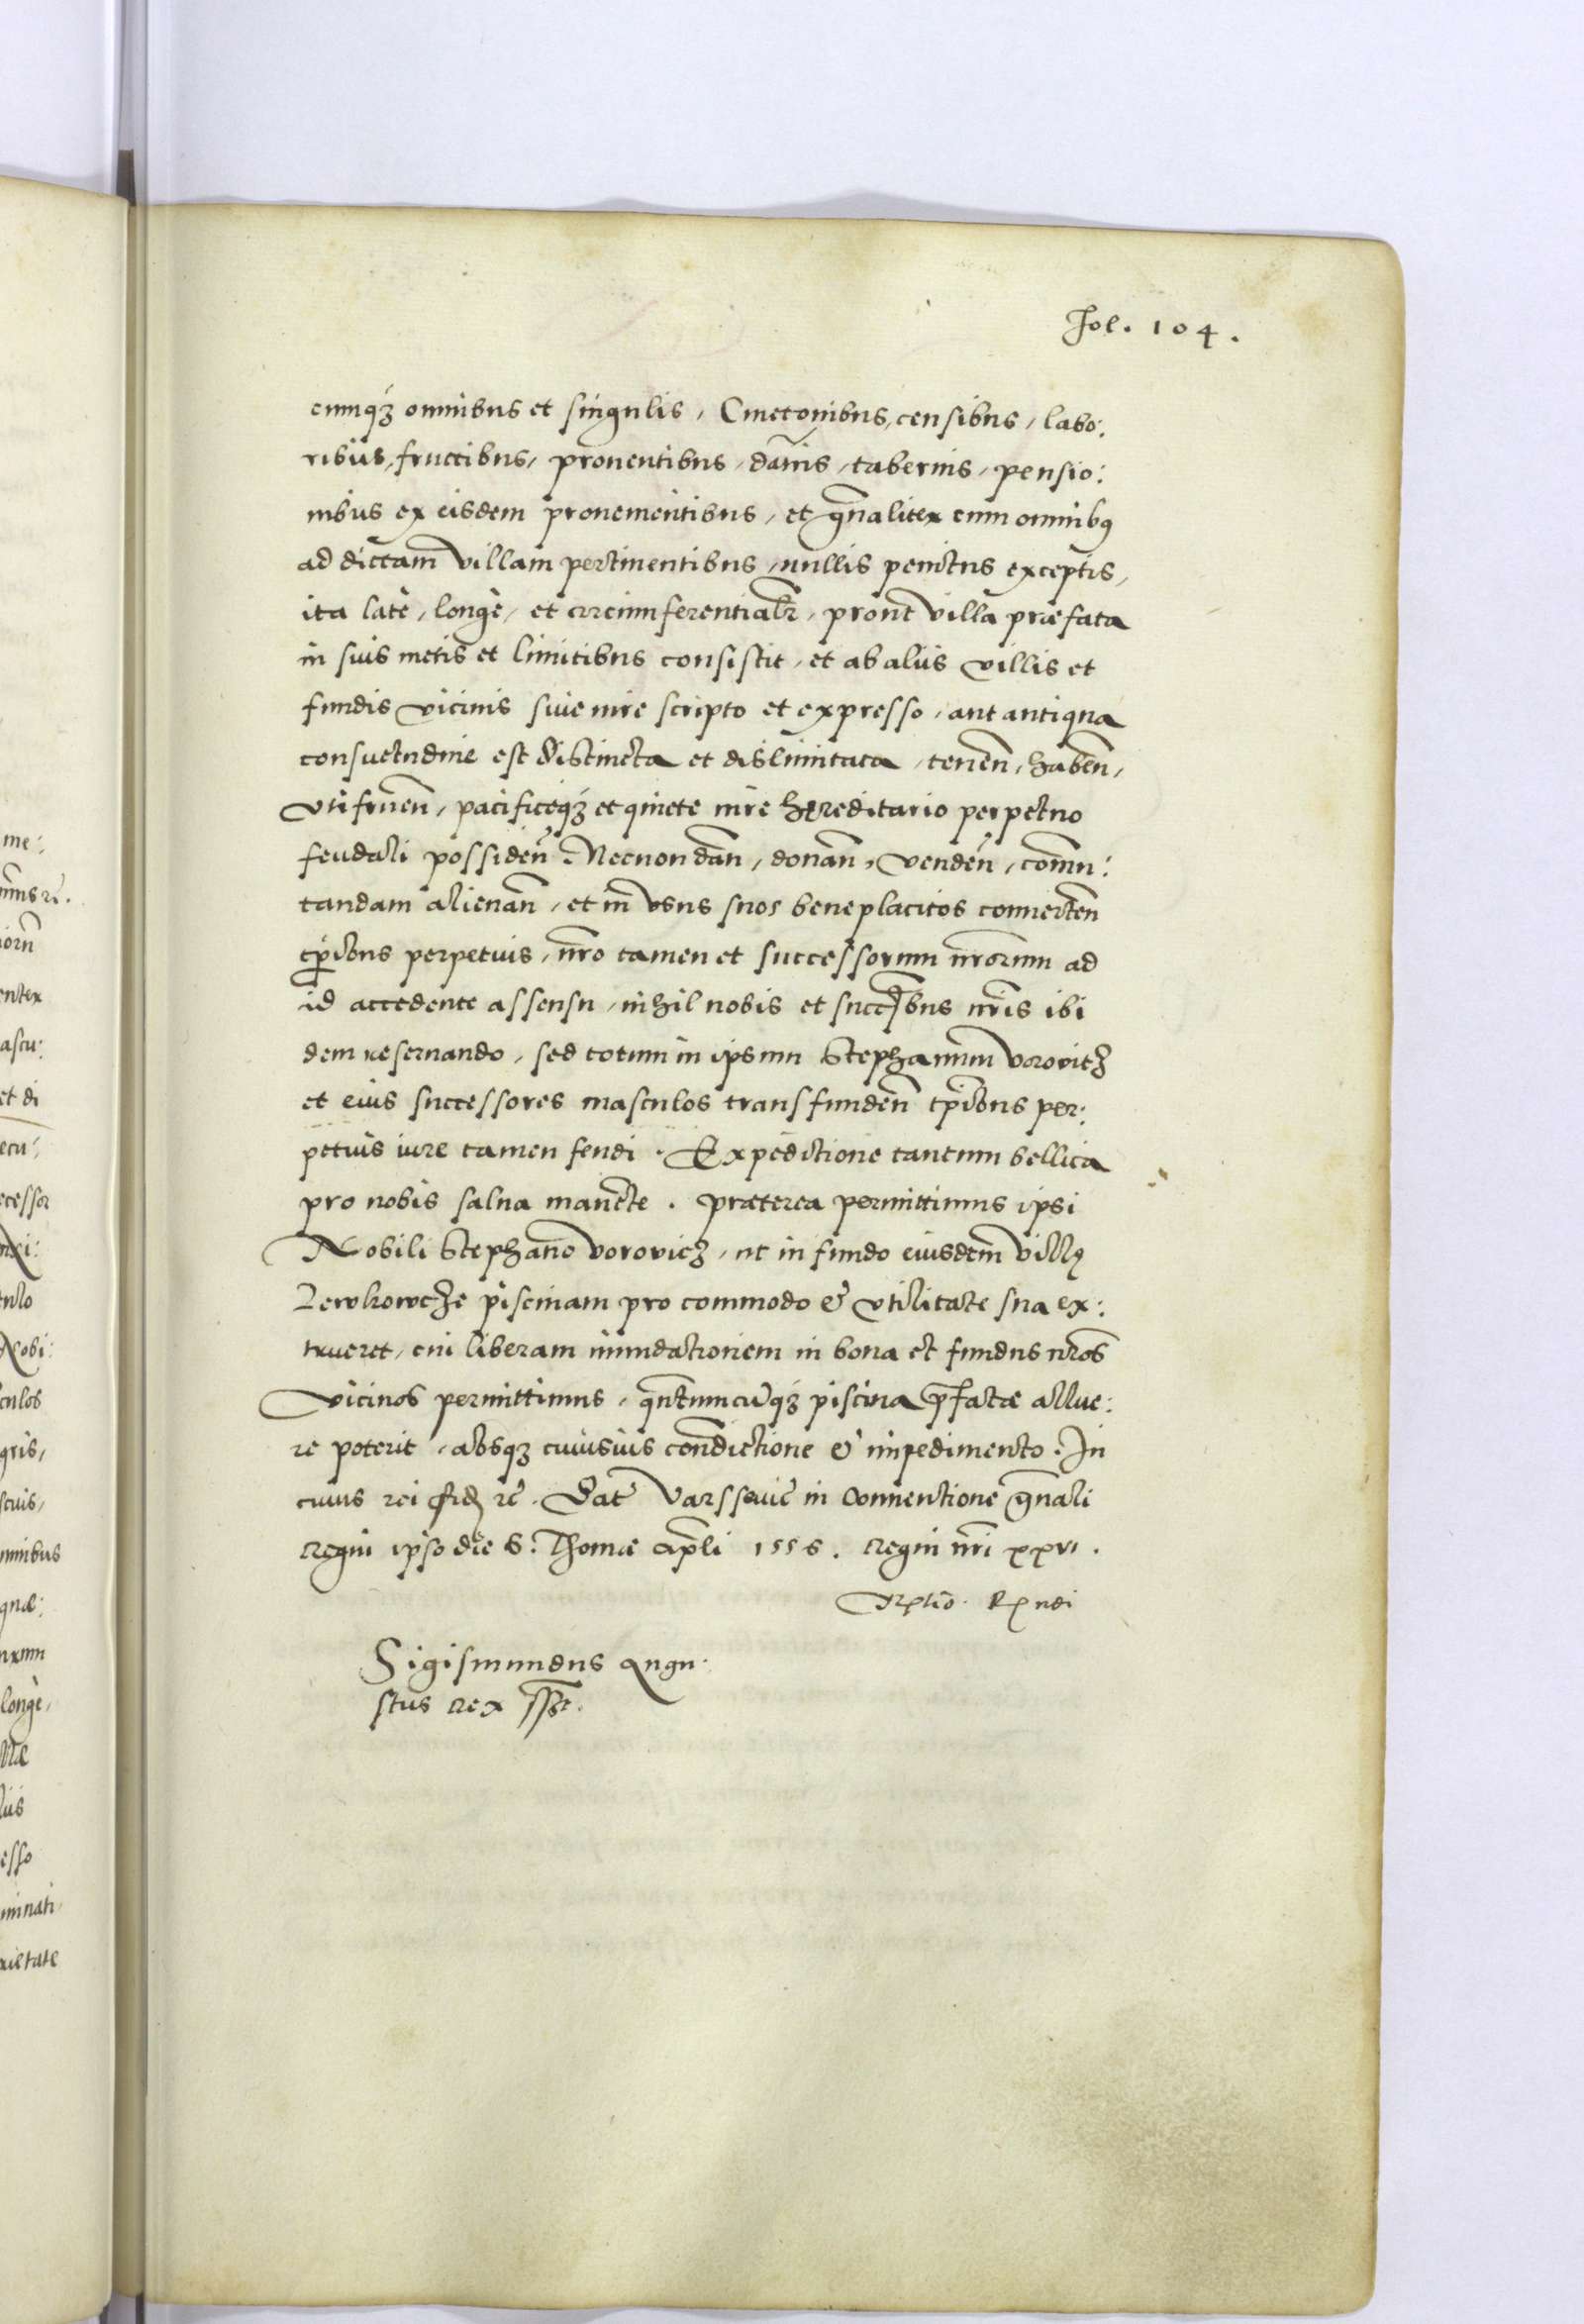 Fol. 104.
cumq3 omnibus et singulis, Cmetonibus, censibus, labo:
ribus, fructibus, prouentibus, daciis, tabernis, pensio:
nibus ex eisdem prouenientibus, et gn̄aliter cum omnibus
ad dictam villam pertinentibus, nullis penitus exceptis,
ita latè, longè, et circumferentialr̄, prout villa præfata
in suis metis et limitibus consistit, et ab aliis villis et
fundis vicinis siue iure scripto et expresso, aut antiqua
consuetudine est distincta et dislimitata, tenen̄, haben̄,
vtifruen̄, pacificeq3 et quiete iure hęreditario perpetuo
feudali possiden̄. Necnon dan̄, donan̄, venden̄, com̄u:
tandam alienan̄, et in vsus suos beneplacitos conuerten̄
tp̄ribus perpetuis, nr̄o tamen et successorum nr̄orum ad
id accedente assensu, nihil nobis et succ̄bus nr̄is ibi
dem reseruando, sed totum in ipsum Stephanum Vorovitz
et eius successores masculos transfunden̄ tp̄ribus per:
petuis iure tamen feudi. Expeditione tantum bellica
pro nobis salua manēte. Præterea permittimus ipsi
Nobili Stephano Vorovicz, ut in fundo eiusdem villę
Lewkowcze piscinam pro commodo & vtilitate sua ex:
trueret, cui liberam inundationem in bona et fundus nr̄os
vicinos permittimus, quantumcunq3 piscina p̄fatæ allue:
re poterit, absq3 cuiusuis condictione & impedimento. In
cuius rei fidē rc̄. Dat̄ Varssauiē in Conuentione gn̄ali
Regni ipso die S. Thomæ Ap̄li 1556. Regni nr̄i xxvi.
Sigismundus Augu:
stus Rex sszt.